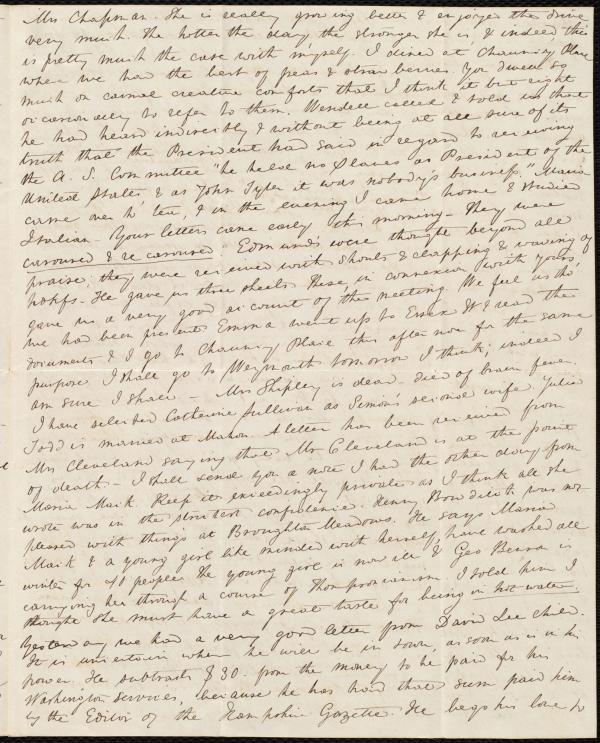 Mrs Chapman. She is really growing better & enjoys the drive
very much. The hotter the day the stronger she is, & indeed this
is pretty much the case with myself. I dined at Chauncy Place
where we had the best of peas & strawberries. You dwell so
much on carnal creature comforts that I think it but right
occasionally to refer to them. Wendell called & told us that
he had heard indirectly & without being at all sure of its
truth that the President had said in regard to receiving
the A. S. Committee "he held no slaves as President of the
United States, & as John Tyler it was nobody's business." Maria
came over to tea, & in the evening I came home & studied
Italian. Your letters came early this morning. They were
caroused & re caroused. Edmund's were thought beyond all
praise, they were received with shouts & clapping & waving of
hdkfs. He gave us three sheets. These, in connexion with yours,
gave us a very good account of the meeting. We feel as tho'
we had been present. Emma went up to Essex St & read the
documents & I go to Chauncy Place this afternoon for the same
purpose. I shall go to Weymouth tomorrow I think, indeed I
am sure I shall. — Mrs Shipley is dead. died of brain fever.
I have selected Catherine Sullivan as Simon's second wife. Julia
Todd is married at Mahon. A letter has been received from
Mrs Cleveland saying that Mr Cleveland is at the point
of death — I shall send you a note I had the other day from
Maria Mack. Keep it exceedingly private as I think all she
wrote was in the strictest confidence. Henry Bowditch was not
pleased with things at Broughton Meadows. He says Maria
Mack & a young girl like minded with herself, have washed all
winter for 40 people. The young girl is now ill & Geo Benson is
carrying her through a course of Thompsonianism. I told him I
thought she must have a great taste for being in hot water.
Yesterday we had a very good letter from David Lee Child.
It is uncertain when he will be in town, as soon as is in his
power. He subtracts $30. from the money to be paid for his
Washington services, because he has had that sum paid him
by the Editor of the Hampshire Gazette. He begs his love to